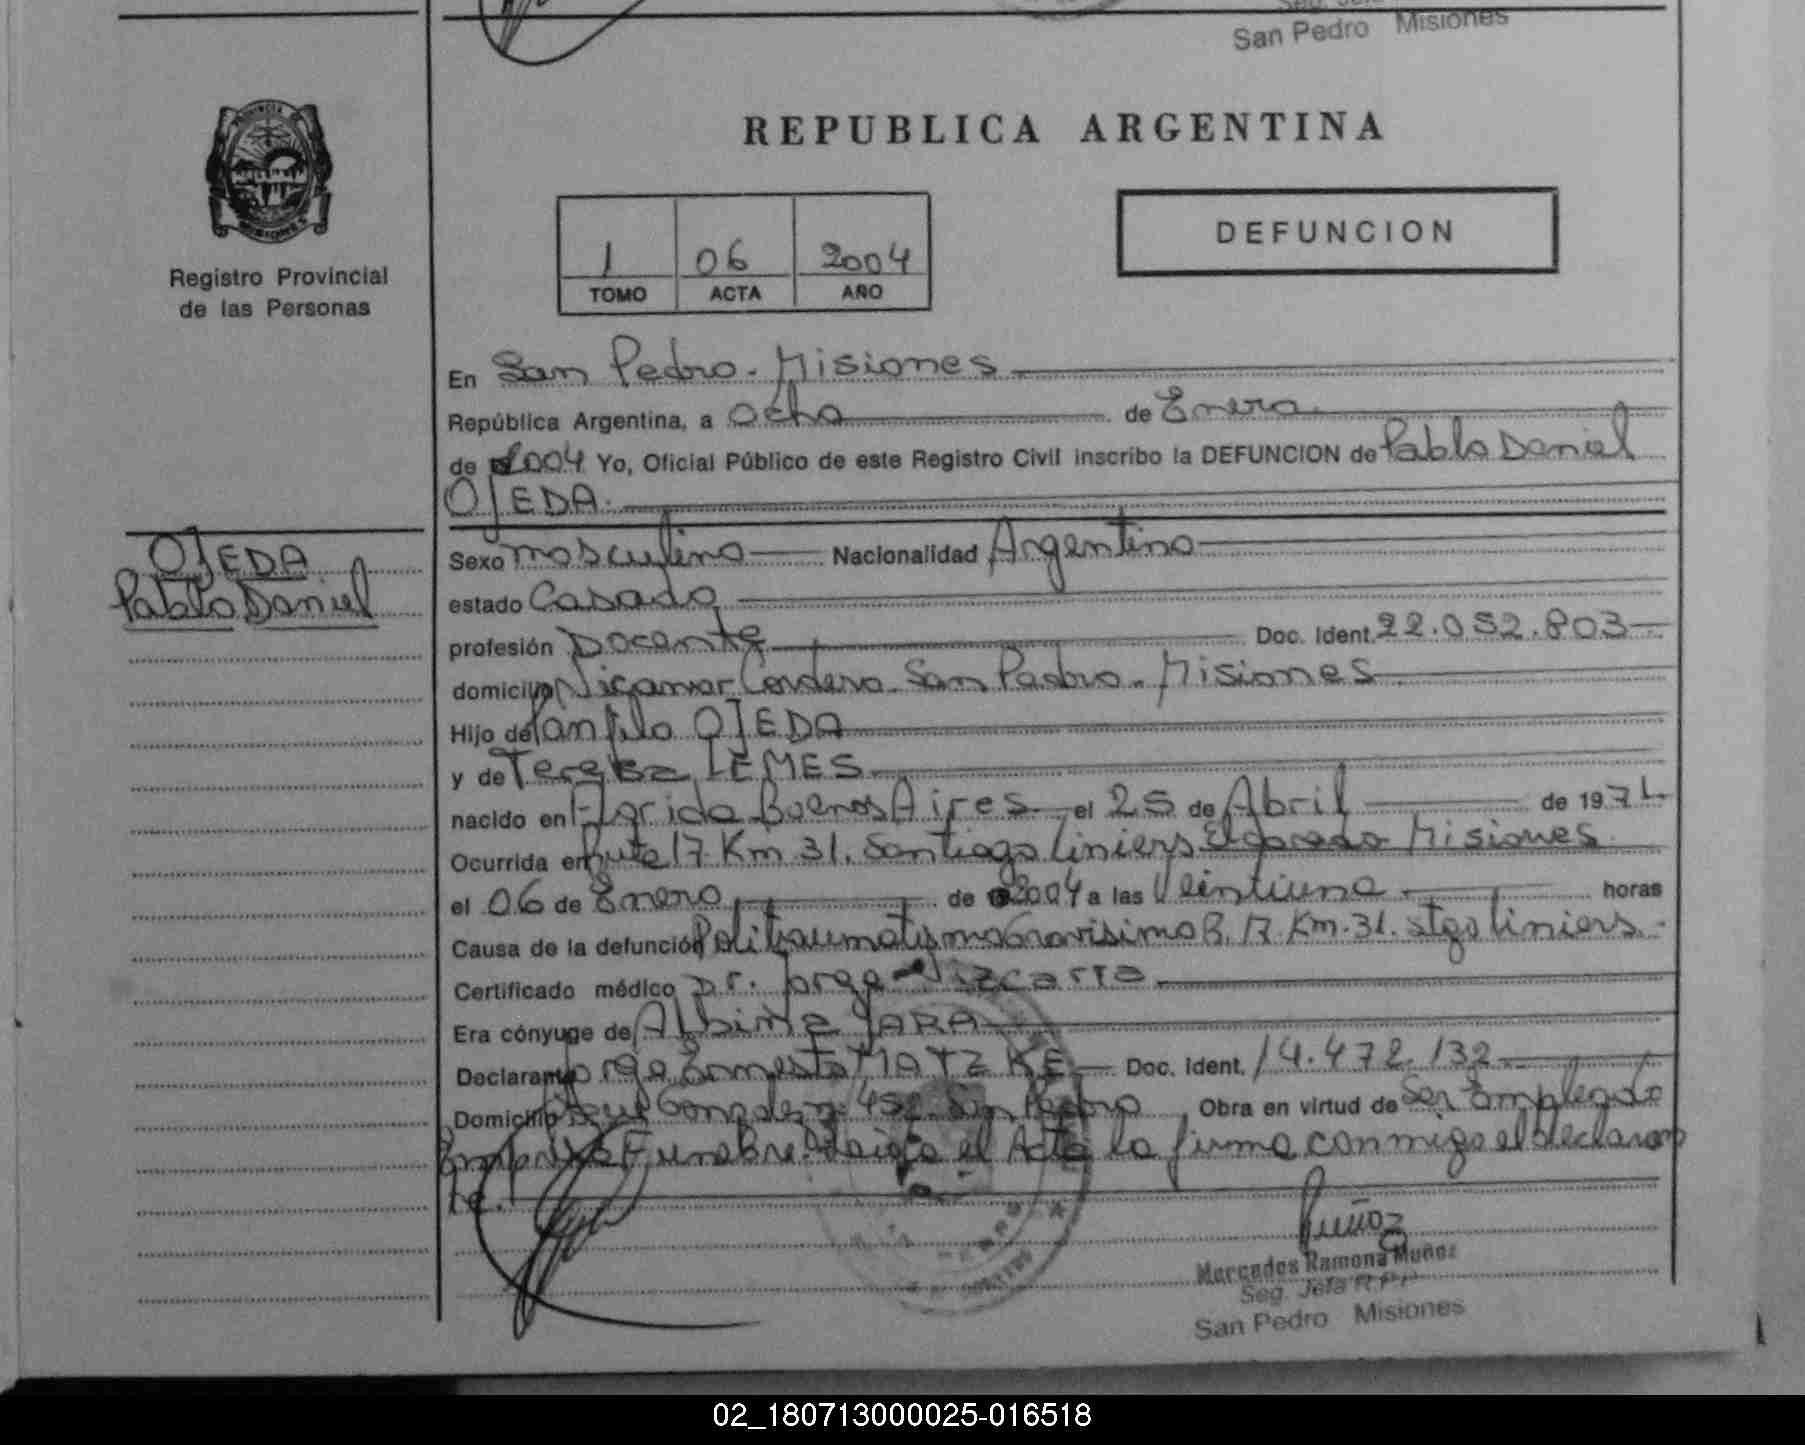 Seg. Jefa
San Pedro Misiones
REPUBLICA ARGENTINA
PROVINCIA DE
MISIONES
Registro Provincial
de las Personas
1 06 2004
TOMO ACTA AÑO
DEFUNCION
En San Pedro. Misiones
República Argentina, a ocho de Enero
de 2004 Yo, Oficial Público de este Registro Civil inscribo la DEFUNCION de Pablo Daniel
OJEDA.
OJEDA
Pablo Daniel
Sexo masculino Nacionalidad Argentino
estado Casado
profesión Docente Doc. Ident. 22.052.803
domicilio Nicanor Cordero. San Pedro. Misiones
Hijo de Panfilo OJEDA
y de Teresa LEMES
nacido en Florida Buenos Aires el 25 de Abril de 1971
Ocurrida en Ruta 17 Km 31. Santiago Liniers Eldorado Misiones
el 06 de Enero de 2004 a las Veintiuna horas
Causa de la defunción Politraumatismo Gravisimo R. 17 Km. 31. Stgo Liniers.
Certificado médico Dr. Jorge
Era cónyuge de Albina JARA
Declarante Jorge Ernesto MATZKE Doc. Ident. 14.472.132
Domicilio Gonzalez 452 San Pedro Obra en virtud de Ser Empleado
Empresa Funebre. Leida el Acta la firma conmigo el declaran
te.
Muñoz
Mercedes Ramona Muñoz
Seg. Jefa R.P.P.
San Pedro Misiones
02_180713000025-016518